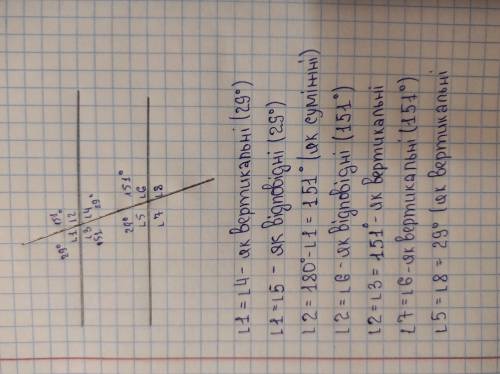 29° 151°
∟1 ∟2
∟3 ∟4
151 29°
29° 151°
∟5 ∟6
∟7 ∟8
∟1 = ∟4 - як вертикальні (29°)
∟1 = ∟5 - як відповідні (29°)
∟2 = 180° - ∟1 = 151° (як суміжні)
∟2 = ∟6 - як відповідні (151°)
∟2 = ∟3 = 151° - як вертикальні
∟7 = ∟6 - як вертикальні (151°)
∟5 = ∟8 = 29° (як вертикальні